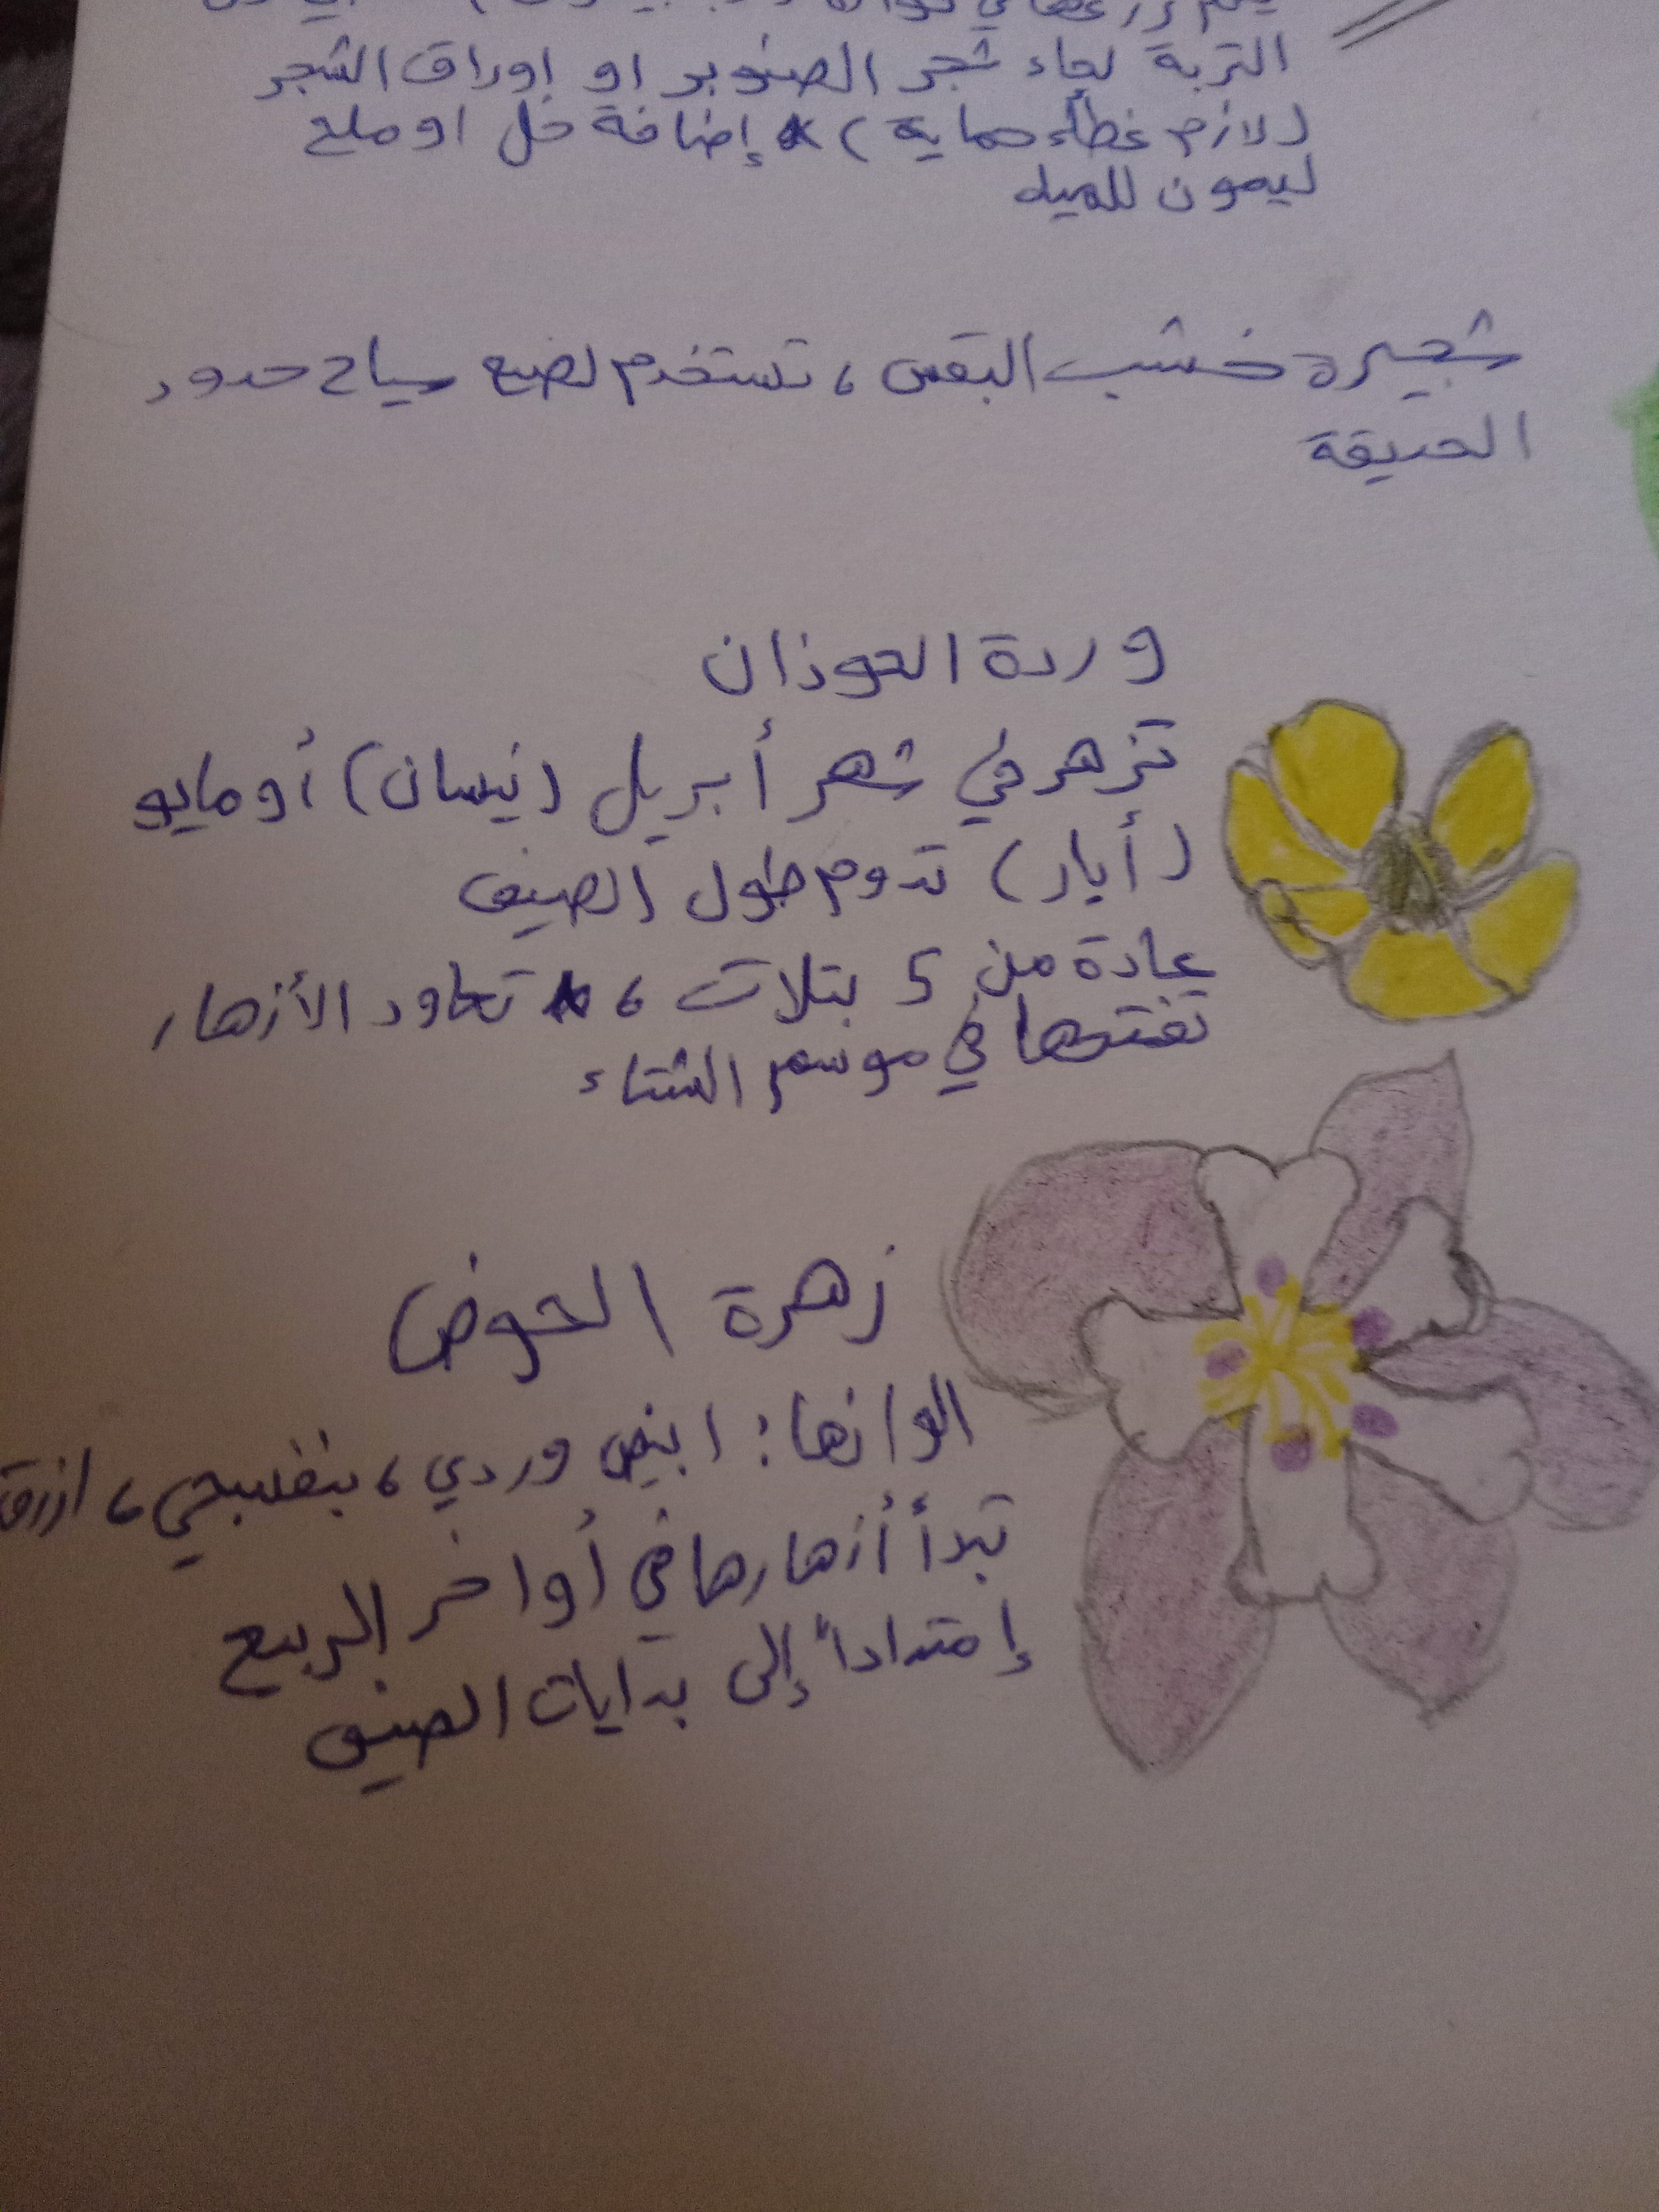 التربة لحاء شجر الصنوبر او اوراق الشجر
(لازم غطاء حماية) إضافة خل او ملح
ليمون للمياه
شجيرة خشب البقس، تستخدم لصنع سياج حدود
الحديقة
وردة الحوذان
تزهر في شهر أبريل (نيسان) أو مايو
(أيار) تدوم طول الصيف
عادة من 5 بتلات، تعاود الأزهار
تفتحها في موسم الشتاء
زهرة الحوض
الوانها: ابيض وردي، بنفسجي، ازرق
تبدأ أزهارها في أواخر الربيع
إمتداداً إلى بدايات الصيف